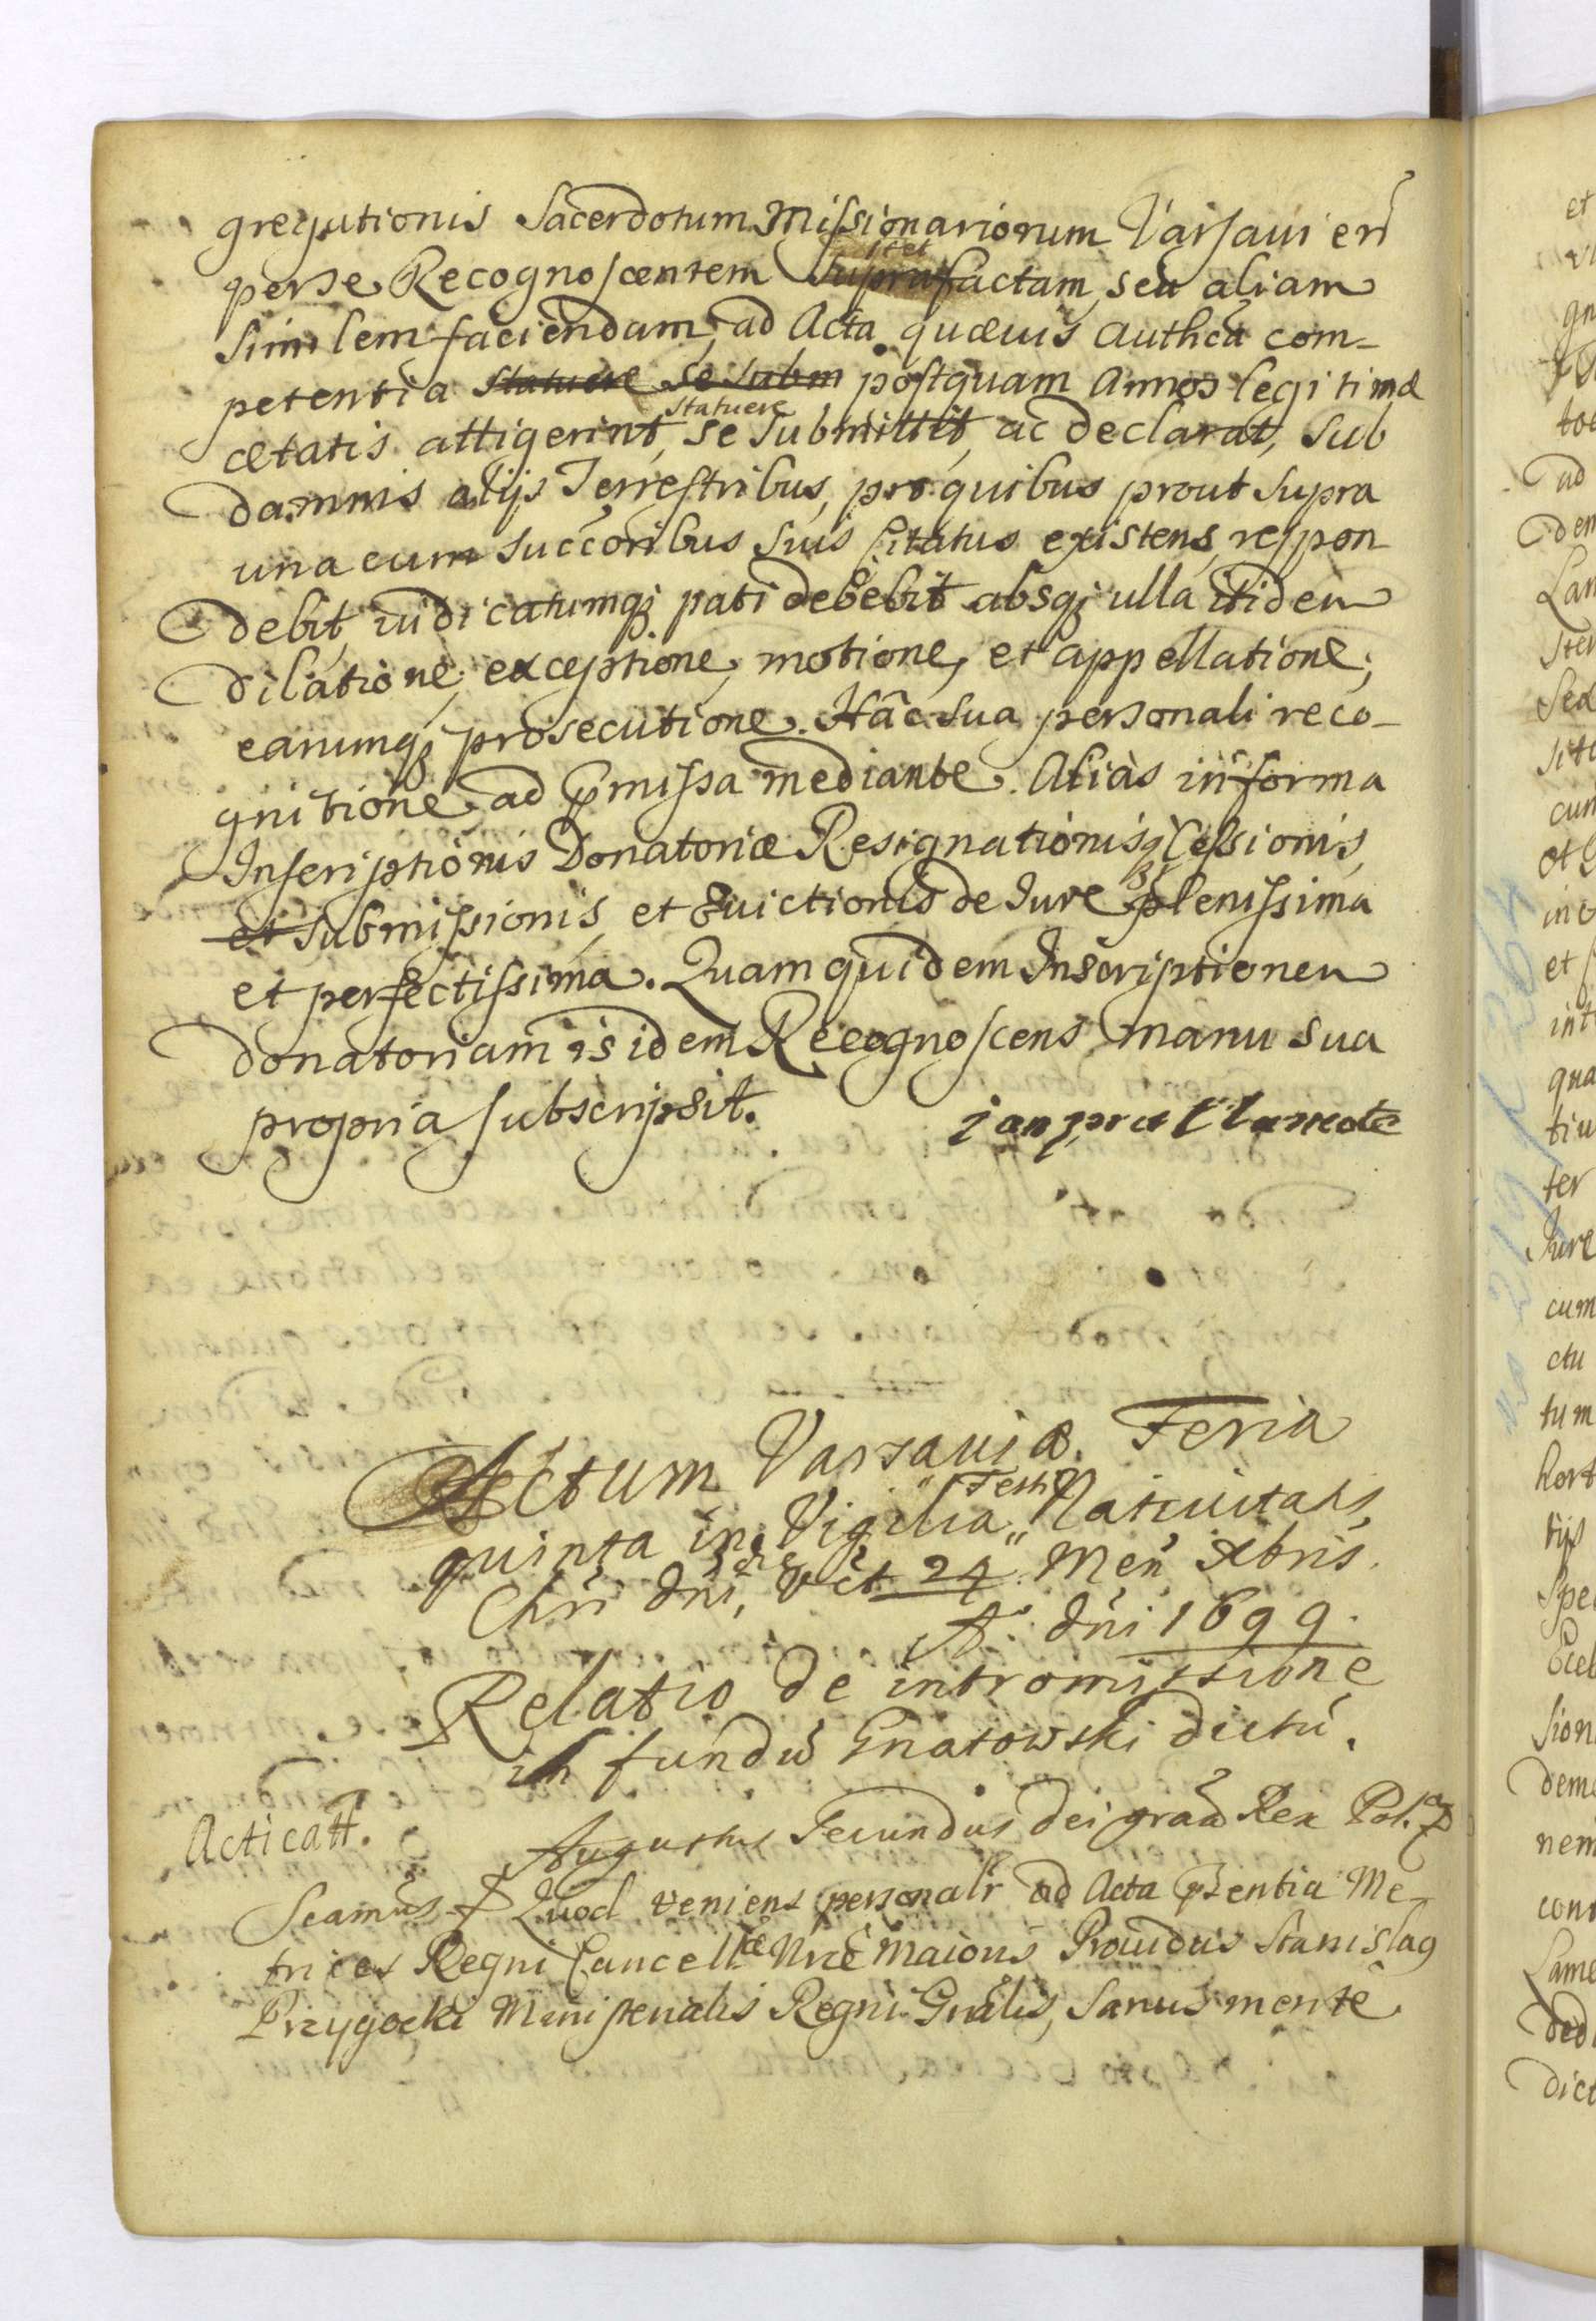 gregationis Sacerdotum Missionariorum Varsavien
per se Recognoscentem factam, seu aliam
similem faciendam, ad Acta quævis Authca com-
petentia statuere se subm postquam Annos legitimæ
statuere
ætatis attigerint, se submittit, ac declarat, sub
damnis alijs Terrestribus, pro quibus prout supra
una cum succoribus suis Citatus existens, respon
debit, iudicatumq; pati debebit absq; ulla itidem
dilatione, exceptione, motione, et appellatione,
earumq; prosecutione. Hac sua personali reco-
gnitione ad pmissa mediante. Alias in forma
Inscriptionis Donatoriæ Resignationisq; Cessionis,
et submissionis, et Evictionis de Iure plenissima
et perfectissima. Quam quidem Inscriptionem
donatoriam is idem Recognoscens manu sua
propria subscripsit.
Actum Varsaviæ. Feria
quinta in Vigilia Festi Nativitatis
Chri dni, die vt 24 Men Xbris.
Ao dni 1699.
Relatio de intromissione
in fundu Gnatowski dictu.
Acticatt.
Augustus Secundus Dei graa Rex Pol.
Seamus Quod veniens personalr ad Acta psentia Me-
trices Regni Cancellæ Nræ Maioris Providus Stanislaq
Przygocki Ministerialis Regni Gnalis, sanus mente
et
ad
dem
Lan
qua
tiu
ter
Iure
cum
ctu
tum
hort
tijs
Spe
Sion
dem
nem
con
Lame
ded
dict